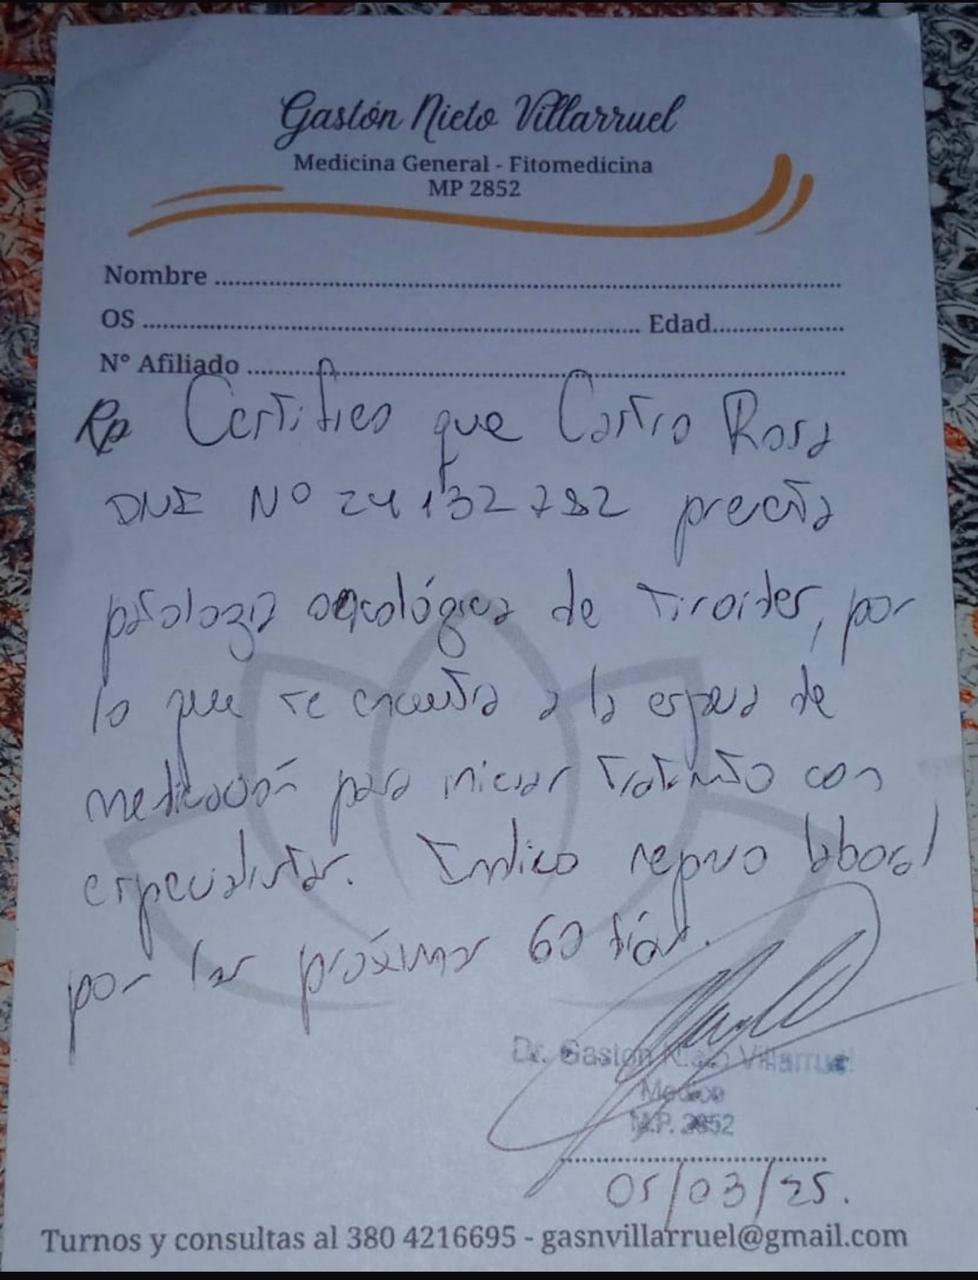 Gastón Nieto Villarruel
Medicina General - Fitomedicina
MP 2852
Nombre
OS Edad
N° Afiliado
Rp Certifico que Castro Rosa
DNI N° 24132782 presenta
patología oncológica de tiroides, por
lo que se encuentra a la espera de
medicación para iniciar tratamiento con
especialistas. Indico reposo laboral
por los próximos 60 días.
Dr. Gaston Nieto Villarruel
Medico
M.P. 2852
05/03/25.
Turnos y consultas al 380 4216695 - gasnvillarruel@gmail.com